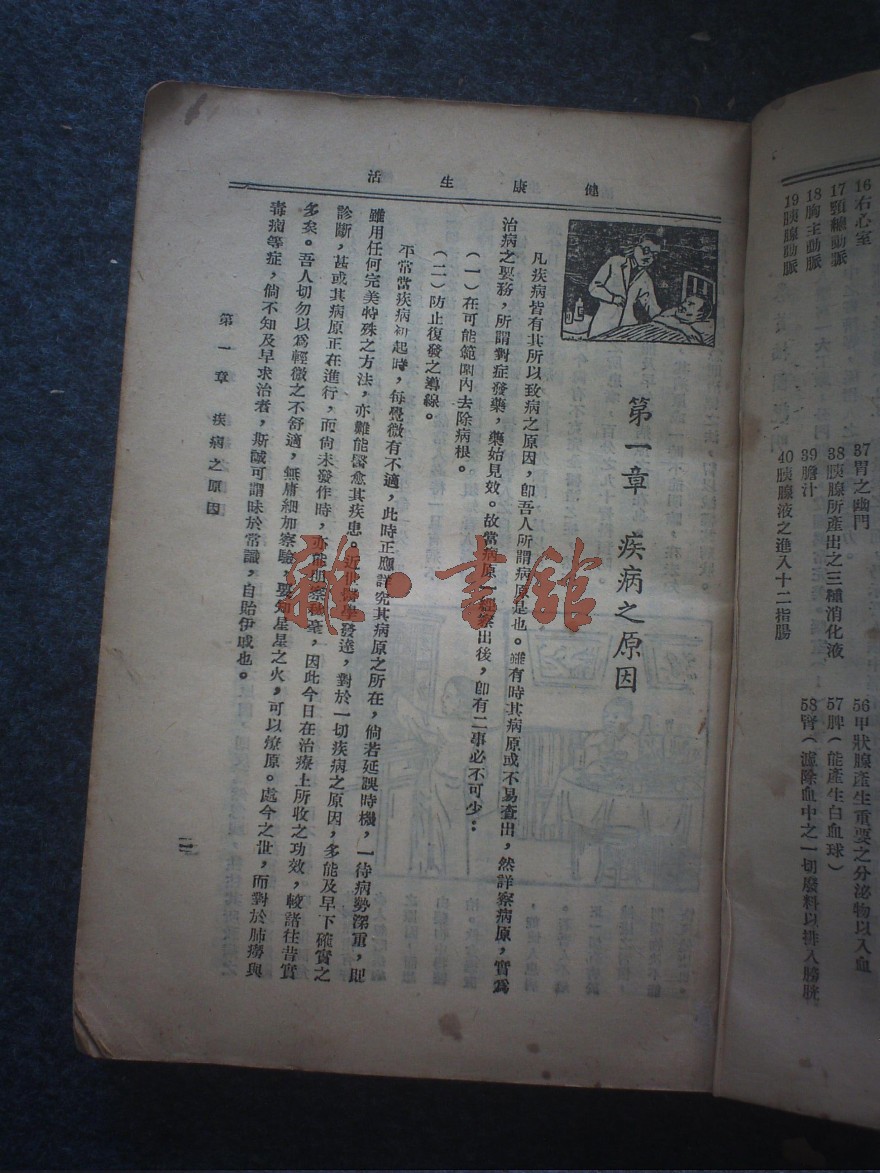 16 右心室
17 頸總動脈
18 胸主動脈
19 胰腺動脈
37 胃之幽門
38 胰腺所產出之三種消化液
39 膽汁
40 胰腺液之進入十二指腸
56 甲狀腺產生重要之分泌物以入血
57 脾（能產生白血球）
58 腎（濾除血中之一切廢料以排入膀胱
健康生活
第一章 疾病之原因
凡疾病皆有其所以致病之原因，卽吾人所謂病原是也。雖有時其病原或不易查出，然詳察病原，實爲
治病之要務，所謂對症發藥，藥始見效。故當病原一經察出後，卽有二事必不可少：
（一）在可能範圍內去除病根。
（二）防止復發之導線。
平常當疾病初起時，每覺微有不適，此時正應詳究其病原之所在，倘若延誤時機，一待病勢深重，卽
雖用任何完美特殊之方法，亦難能醫愈其疾患。近世醫學發達，對於一切疾病之原因，多能及早下確實之
診斷，甚或其病原正在進行，而尙未發作時，亦能明察秋毫，因此今日在治療上所收之功效，較諸往昔實
多矣。吾人切勿以爲輕微之不舒適，無庸細加察驗，要知星星之火，可以燎原。處今之世，而對於肺癆與
毒瘤等症，倘不知及早求治者，斯誠可謂昧於常識，自貽伊戚也。
第一章 疾病之原因
雜·書館